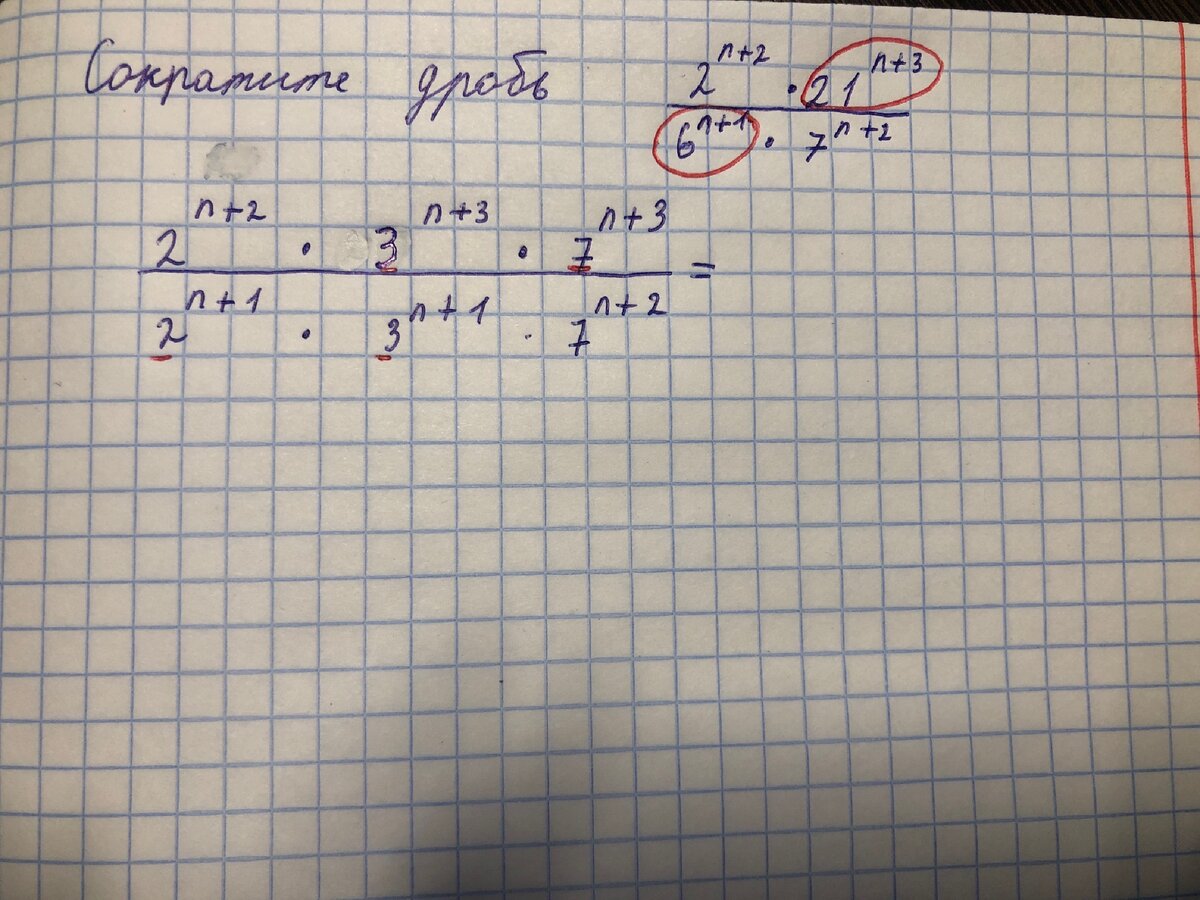 Сократите дробь 2^{n+2} · 21^{n+3}
6^{n+1} · 7^{n+2}
2^{n+2} · 3^{n+3} · 7^{n+3} =
2^{n+1} · 3^{n+1} · 7^{n+2}